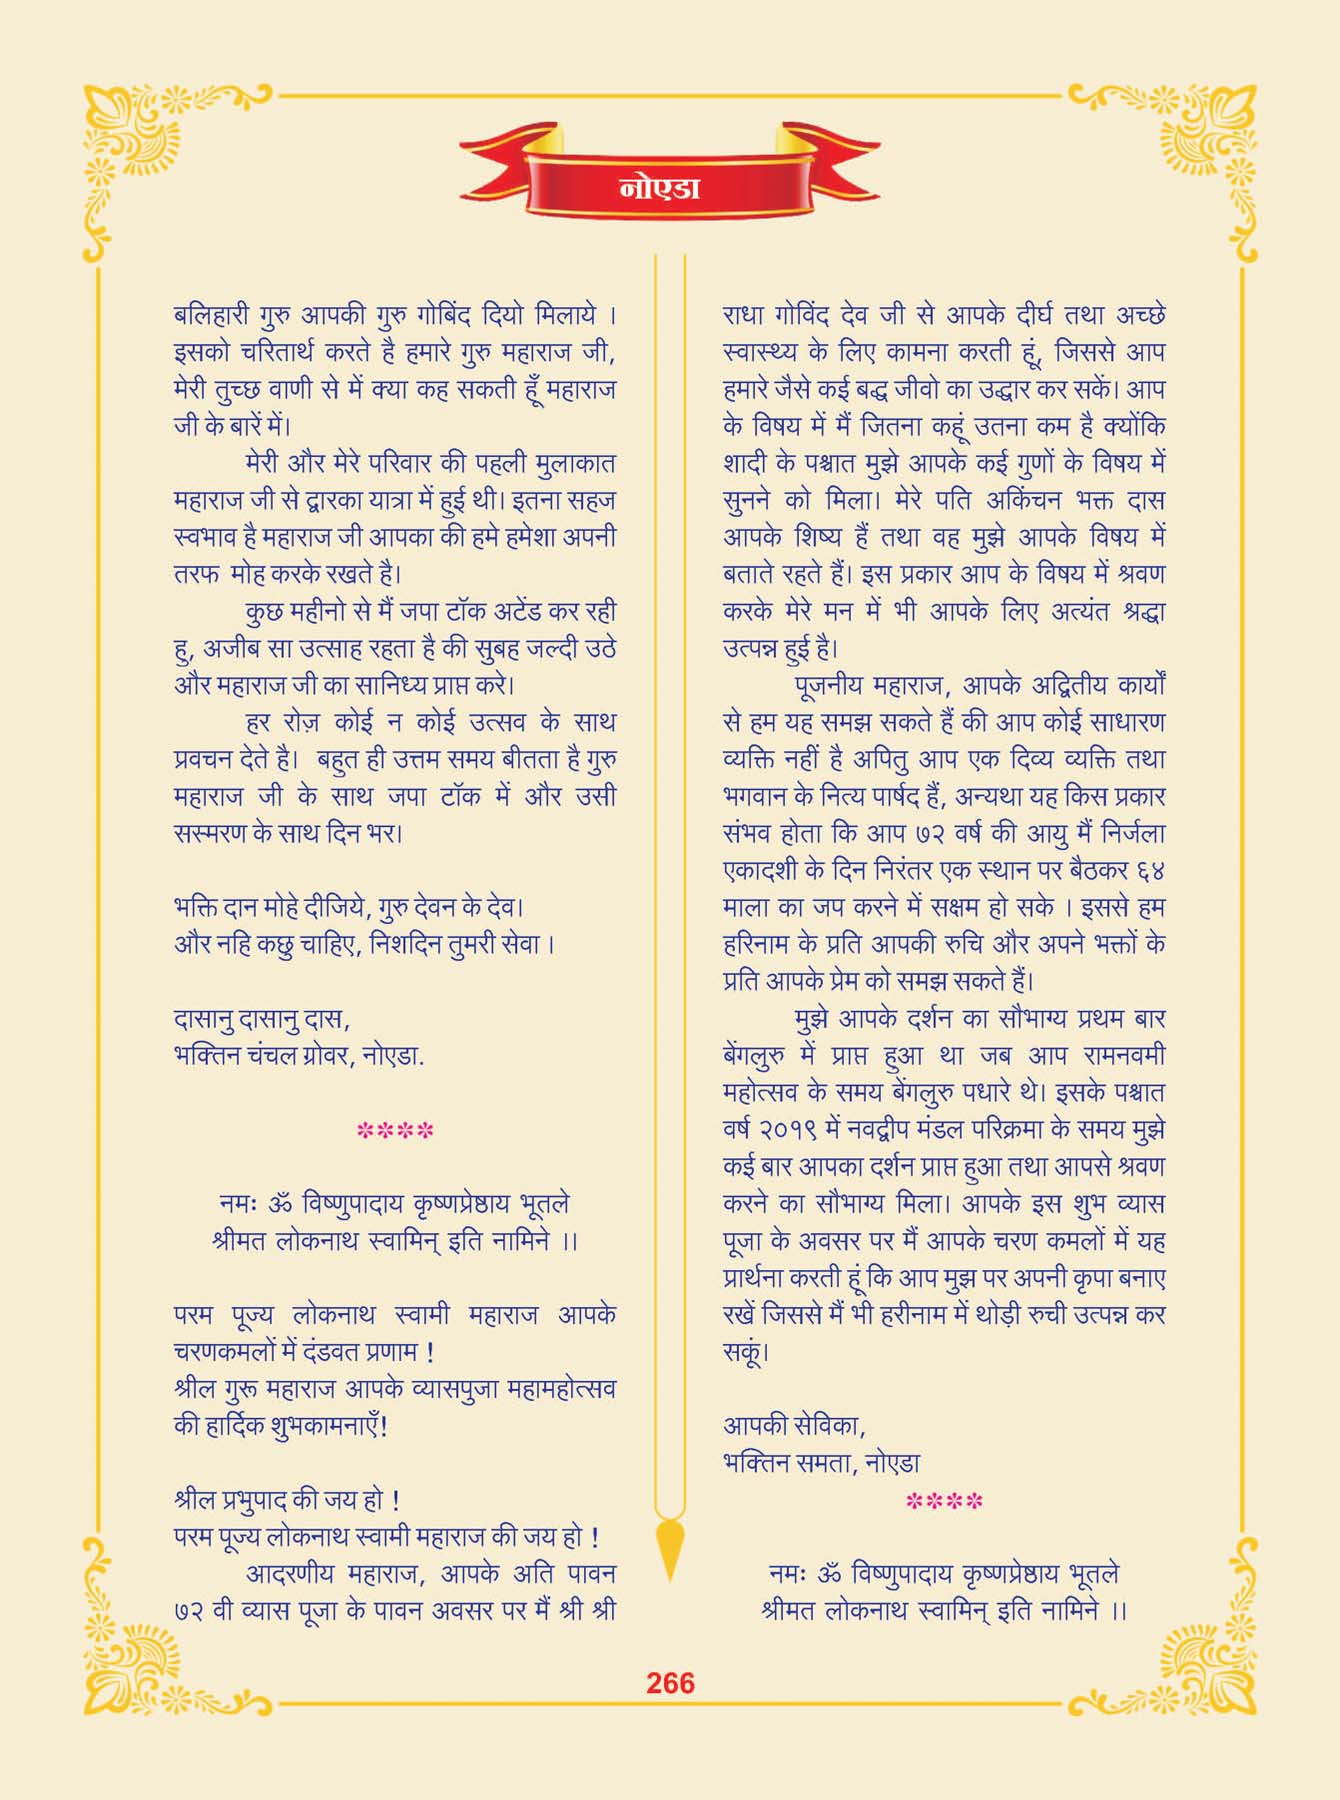 नोएडा
बलिहारी गुरु आपकी गुरु गोबिंद दियो मिलाये ।
इसको चरितार्थ करते है हमारे गुरु महाराज जी,
मेरी तुच्छ वाणी से में क्या कह सकती हूँ महाराज
जी के बारें में।
मेरी और मेरे परिवार की पहली मुलाकात
महाराज जी से द्वारका यात्रा में हुई थी। इतना सहज
स्वभाव है महाराज जी आपका की हमे हमेशा अपनी
तरफ मोह करके रखते है।
कुछ महीनो से मैं जपा टॉक अटेंड कर रही
हु, अजीब सा उत्साह रहता है की सुबह जल्दी उठे
और महाराज जी का सानिध्य प्राप्त करे।
हर रोज़ कोई न कोई उत्सव के साथ
प्रवचन देते है। बहुत ही उत्तम समय बीतता है गुरु
महाराज जी के साथ जपा टॉक में और उसी
सस्मरण के साथ दिन भर।
भक्ति दान मोहे दीजिये, गुरु देवन के देव।
और नहि कछु चाहिए, निशदिन तुमरी सेवा ।
दासानु दासानु दास,
भक्तिन चंचल ग्रोवर, नोएडा.
****
नमः ॐ विष्णुपादाय कृष्णप्रेष्ठाय भूतले
श्रीमत लोकनाथ स्वामिन् इति नामिने ।।
परम पूज्य लोकनाथ स्वामी महाराज आपके
चरणकमलों में दंडवत प्रणाम !
श्रील गुरू महाराज आपके व्यासपुजा महामहोत्सव
की हार्दिक शुभकामनाएँ!
श्रील प्रभुपाद की जय हो !
परम पूज्य लोकनाथ स्वामी महाराज की जय हो !
आदरणीय महाराज, आपके अति पावन
७२ वी व्यास पूजा के पावन अवसर पर मैं श्री श्री
राधा गोविंद देव जी से आपके दीर्घ तथा अच्छे
स्वास्थ्य के लिए कामना करती हूं, जिससे आप
हमारे जैसे कई बद्ध जीवो का उद्धार कर सकें। आप
के विषय में मैं जितना कहूं उतना कम है क्योंकि
शादी के पश्चात मुझे आपके कई गुणों के विषय में
सुनने को मिला। मेरे पति अकिंचन भक्त दास
आपके शिष्य हैं तथा वह मुझे आपके विषय में
बताते रहते हैं। इस प्रकार आप के विषय में श्रवण
करके मेरे मन में भी आपके लिए अत्यंत श्रद्धा
उत्पन्न हुई है।
पूजनीय महाराज, आपके अद्वितीय कार्यों
से हम यह समझ सकते हैं की आप कोई साधारण
व्यक्ति नहीं है अपितु आप एक दिव्य व्यक्ति तथा
भगवान के नित्य पार्षद हैं, अन्यथा यह किस प्रकार
संभव होता कि आप ७२ वर्ष की आयु मैं निर्जला
एकादशी के दिन निरंतर एक स्थान पर बैठकर ६४
माला का जप करने में सक्षम हो सके । इससे हम
हरिनाम के प्रति आपकी रुचि और अपने भक्तों के
प्रति आपके प्रेम को समझ सकते हैं।
मुझे आपके दर्शन का सौभाग्य प्रथम बार
बेंगलुरु में प्राप्त हुआ था जब आप रामनवमी
महोत्सव के समय बेंगलुरु पधारे थे। इसके पश्चात
वर्ष २०१९ में नवद्वीप मंडल परिक्रमा के समय मुझे
कई बार आपका दर्शन प्राप्त हुआ तथा आपसे श्रवण
करने का सौभाग्य मिला। आपके इस शुभ व्यास
पूजा के अवसर पर मैं आपके चरण कमलों में यह
प्रार्थना करती हूं कि आप मुझ पर अपनी कृपा बनाए
रखें जिससे मैं भी हरीनाम में थोड़ी रुची उत्पन्न कर
सकूं।
आपकी सेविका,
भक्तिन समता, नोएडा
****
नमः ॐ विष्णुपादाय कृष्णप्रेष्ठाय भूतले
श्रीमत लोकनाथ स्वामिन् इति नामिने ।।
266